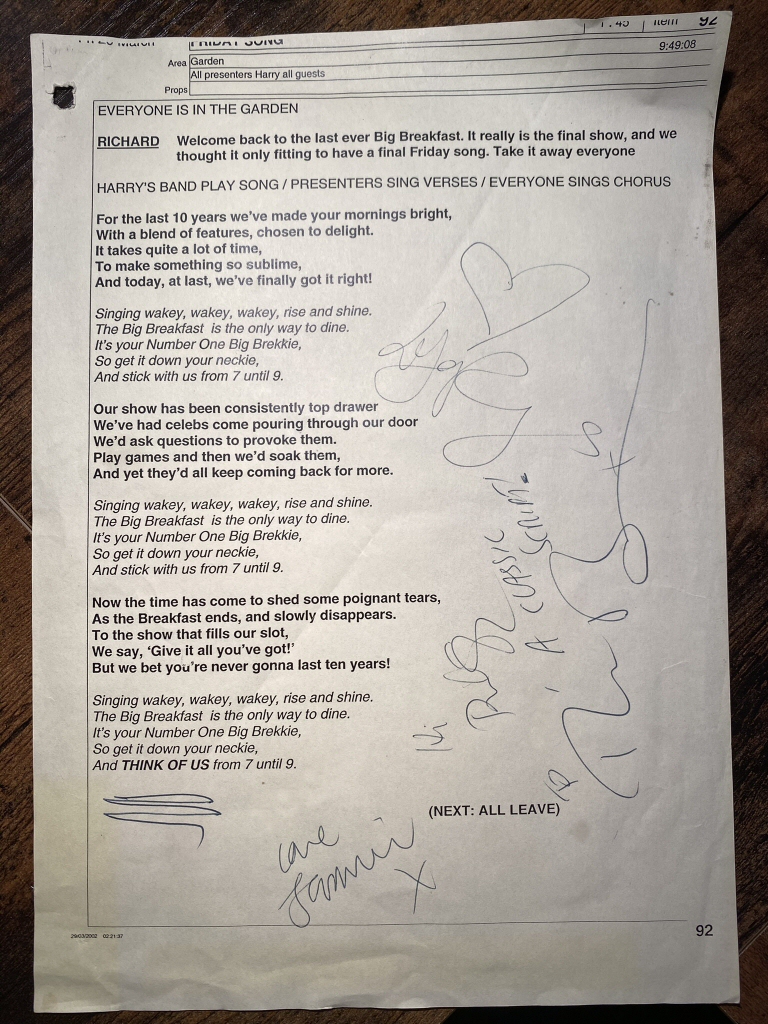 FRIDAY SONG
1.45 Item 92
9:49:08
Area Garden
All presenters Harry all guests
Props
EVERYONE IS IN THE GARDEN
RICHARD Welcome back to the last ever Big Breakfast. It really is the final show, and we
thought it only fitting to have a final Friday song. Take it away everyone
HARRY'S BAND PLAY SONG / PRESENTERS SING VERSES / EVERYONE SINGS CHORUS
For the last 10 years we've made your mornings bright,
With a blend of features, chosen to delight.
It takes quite a lot of time,
To make something so sublime,
And today, at last, we've finally got it right!
Singing wakey, wakey, wakey, rise and shine.
The Big Breakfast is the only way to dine.
It's your Number One Big Brekkie,
So get it down your neckie,
And stick with us from 7 until 9.
Our show has been consistently top drawer
We've had celebs come pouring through our door
We'd ask questions to provoke them.
Play games and then we'd soak them,
And yet they'd all keep coming back for more.
Singing wakey, wakey, wakey, rise and shine.
The Big Breakfast is the only way to dine.
It's your Number One Big Brekkie,
So get it down your neckie,
And stick with us from 7 until 9.
Now the time has come to shed some poignant tears,
As the Breakfast ends, and slowly disappears.
To the show that fills our slot,
We say, 'Give it all you've got!'
But we bet you're never gonna last ten years!
Singing wakey, wakey, wakey, rise and shine.
The Big Breakfast is the only way to dine.
It's your Number One Big Brekkie,
So get it down your neckie,
And THINK OF US from 7 until 9.
A CLASSIC
(NEXT: ALL LEAVE)
Love
X
29/03/2002 02:21:37
92